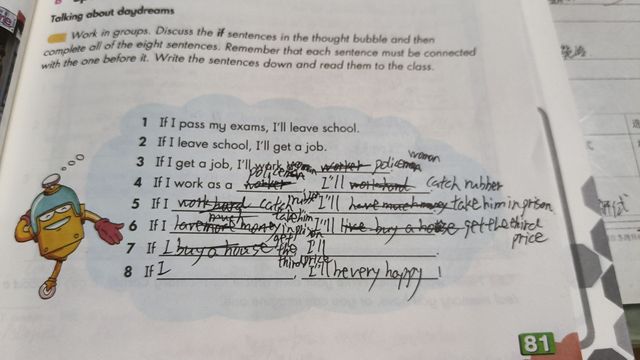 Talking about daydreams
Work in groups. Discuss the if sentences in the thought bubble and then
complete all of the eight sentences. Remember that each sentence must be connected
with the one before it. Write the sentences down and read them to the class.
1 If I pass my exams, I'll leave school.
2 If I leave school, I'll get a job.
woman
3 If I get a job, I'll work worker policeman
policeman
4 If I work as a worker I'll work hard catch rubber
5 If I work hard catch rubber I'll have much money take him in prison.
much take him
6 If I have more money in prison I'll live buy a house get the third
price
get
7 If I buy a house the I'll
third price
8 If I I'll be very happy !
81